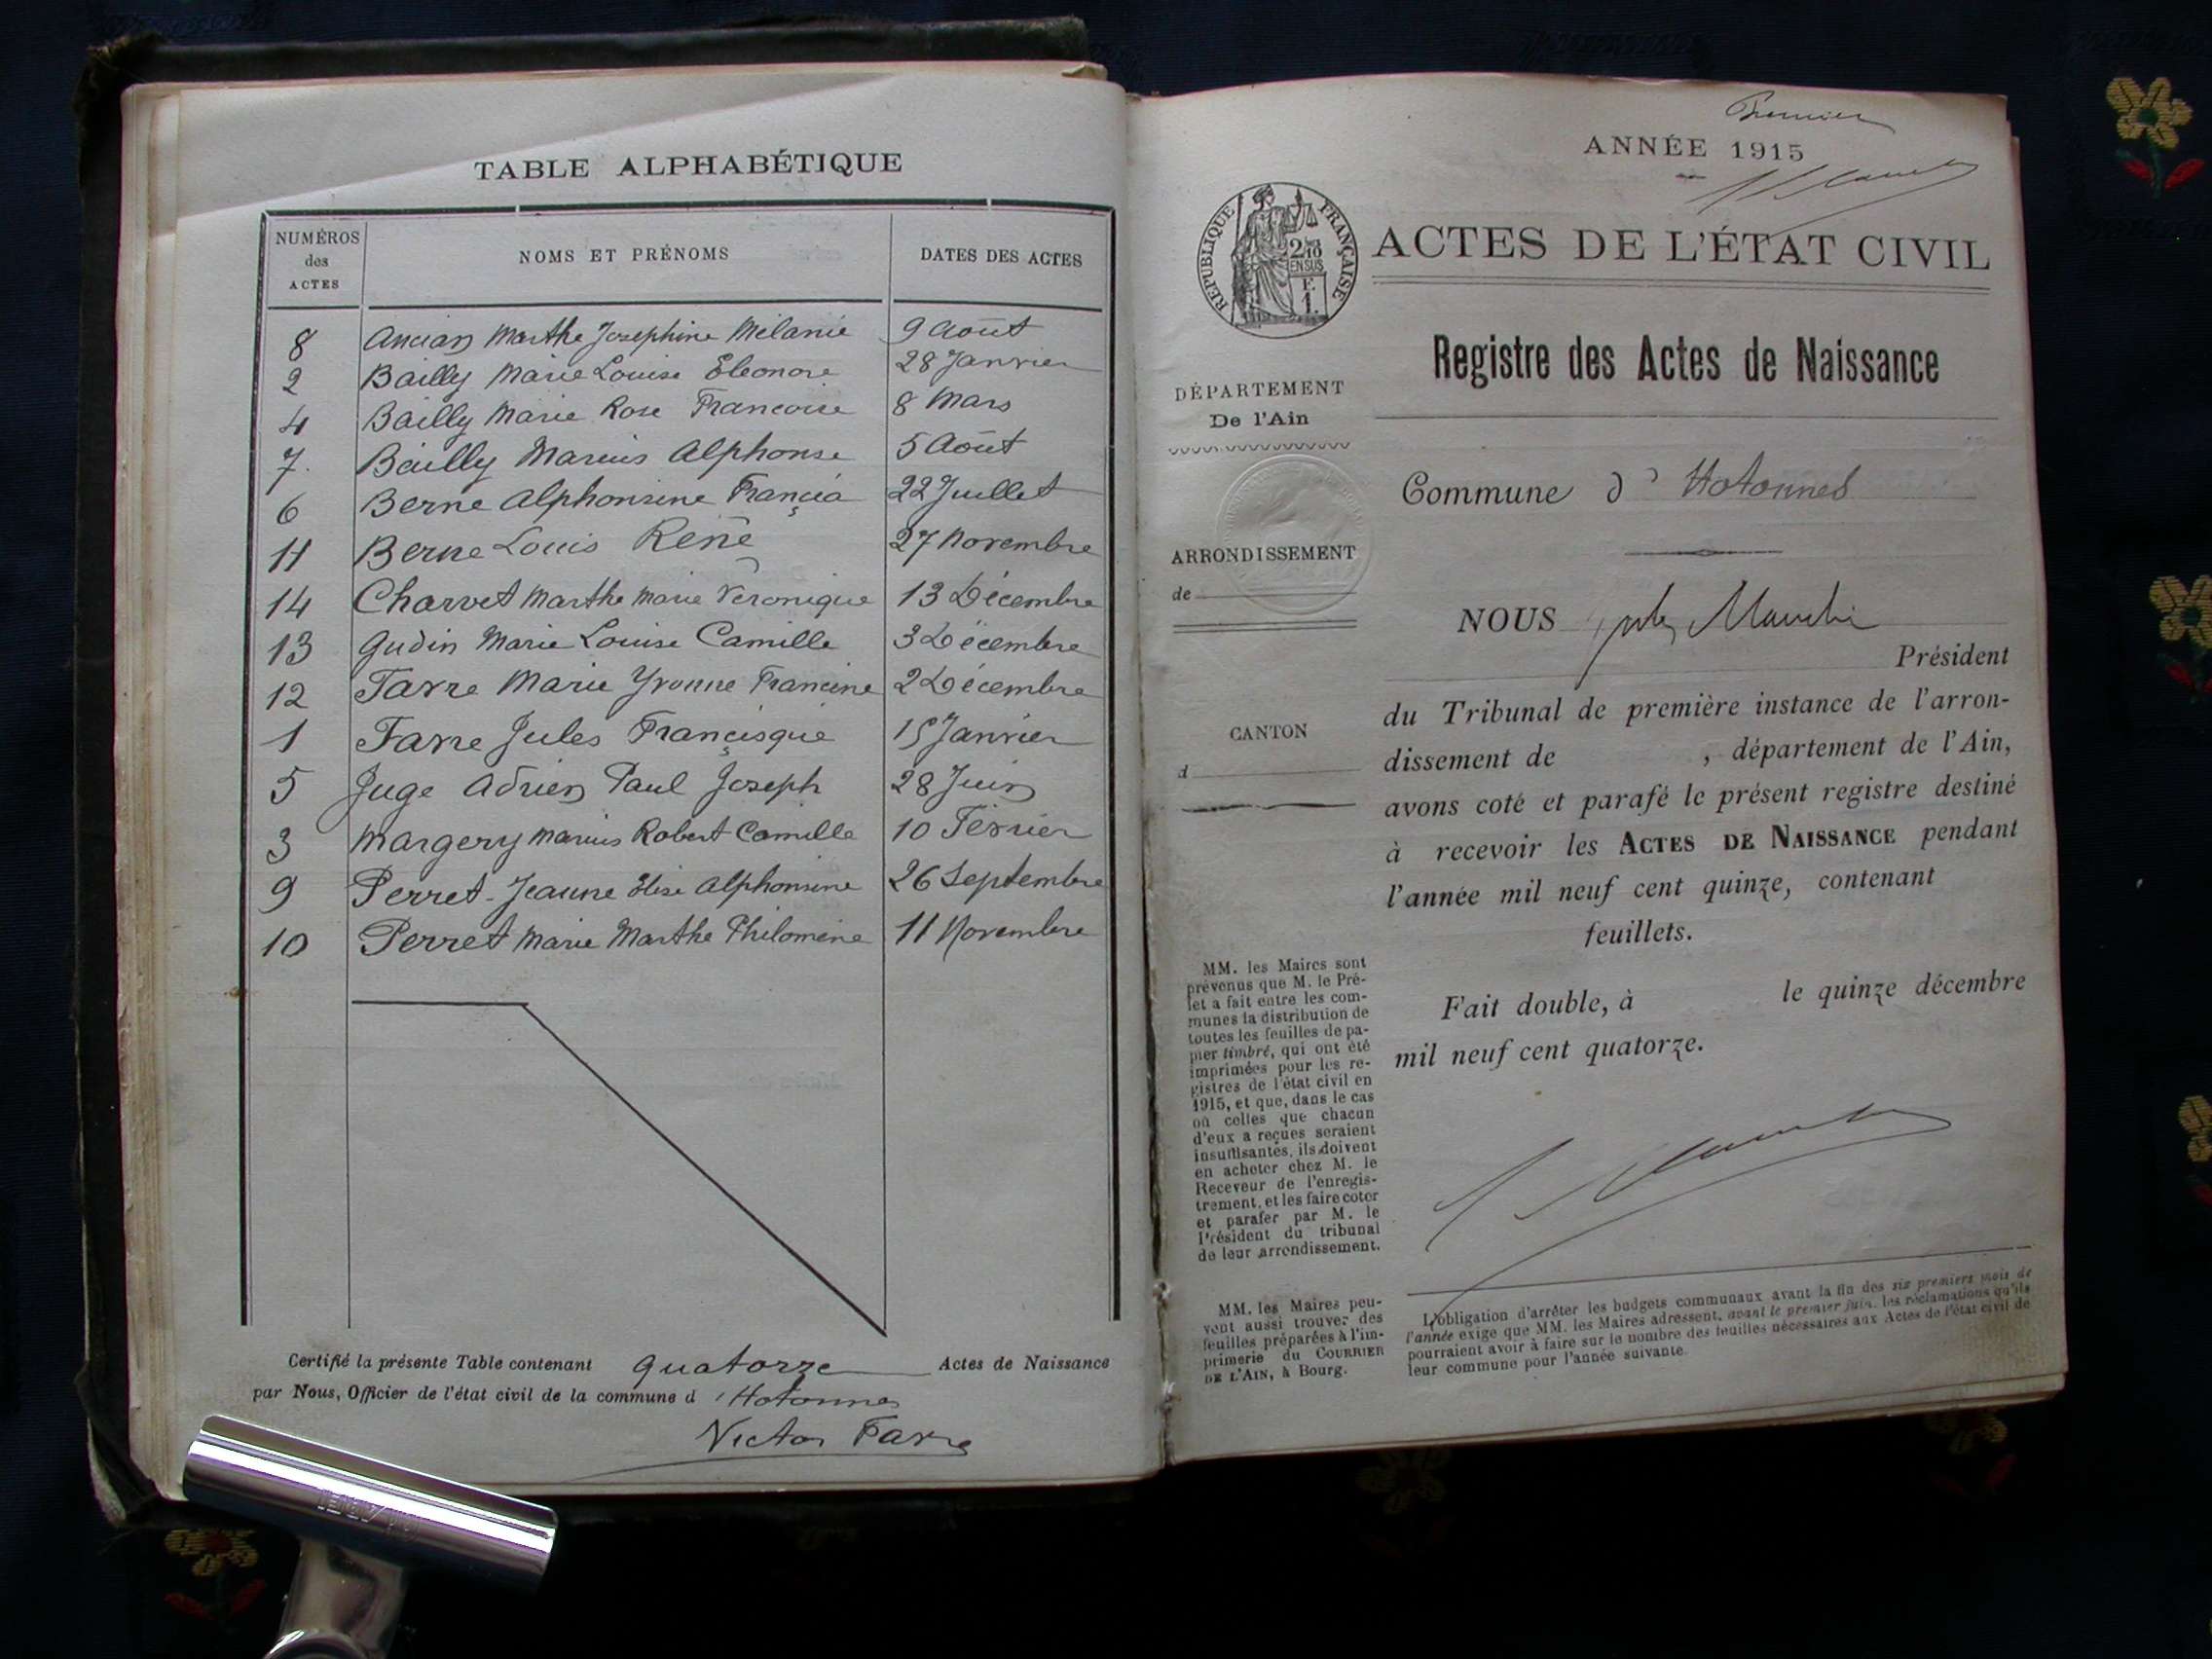 TABLE ALPHABÉTIQUE
NUMÉROS des ACTES NOMS ET PRÉNOMS DATES DES ACTES
8 Ancian Marthe Josephine Mélanie 9 Août
2 Bailly Marie Louise Eleonore 28 Janvier
4 Bailly Marie Rose Francoise 8 Mars
7. Bailly Marius Alphonse 5 Août
6 Berne Alphonsine Francia 22 Juillet
11 Berne Louis René 27 Novembre
14 Charvet Marthe Marie Véronique 13 Décembre
13 Gudin Marie Louise Camille 3 Décembre
12 Favre Marie Yvonne Francine 2 Décembre
1 Favre Jules Francisque 15 Janvier
5 Juge Adrien Paul Joseph 28 Juin
3 Margery Marius Robert Camille 10 Février
9 Perret Jeanne Elise Alphonsine 26 Septembre
10 Perret Marie Marthe Philomène 11 Novembre
Certifié la présente Table contenant quatorze Actes de Naissance
par Nous, Officier de l'état civil de la commune d 'Hotonnes
Victor Favre
Premier
ANNÉE 1915
RÉPUBLIQUE FRANÇAISE
2/10
EN SUS
F.
1.
ACTES DE L'ÉTAT CIVIL
Registre des Actes de Naissance
DÉPARTEMENT
De l'Ain
ARRONDISSEMENT
de
CANTON
d
Commune d' Hotonnes
NOUS
Président
du Tribunal de première instance de l'arron-
dissement de , département de l'Ain,
avons coté et parafé le présent registre destiné
à recevoir les ACTES DE NAISSANCE pendant
l'année mil neuf cent quinze, contenant
feuillets.
Fait double, à le quinze décembre
mil neuf cent quatorze.
MM. les Maires sont
prévenus que M. le Pré-
fet a fait entre les com-
munes la distribution de
toutes les feuilles de pa-
pier timbré, qui ont été
imprimées pour les re-
gistres de l'état civil en
1915, et que, dans le cas
où celles que chacun
d'eux a reçues seraient
insuffisantes, ils doivent
en acheter chez M. le
Receveur de l'enregis-
trement, et les faire coter
et parafer par M. le
Président du tribunal
de leur arrondissement.
MM. les Maires peu-
vent aussi trouver des
feuilles préparées à l'im-
primerie du COURRIER
DE L'AIN, à Bourg.
L'obligation d'arrêter les budgets communaux avant la fin des six premiers mois de
l'année exige que MM. les Maires adressent, avant le premier juin, les réclamations qu'ils
pourraient avoir à faire sur le nombre des feuilles nécessaires aux Actes de l'état civil de
leur commune pour l'année suivante.